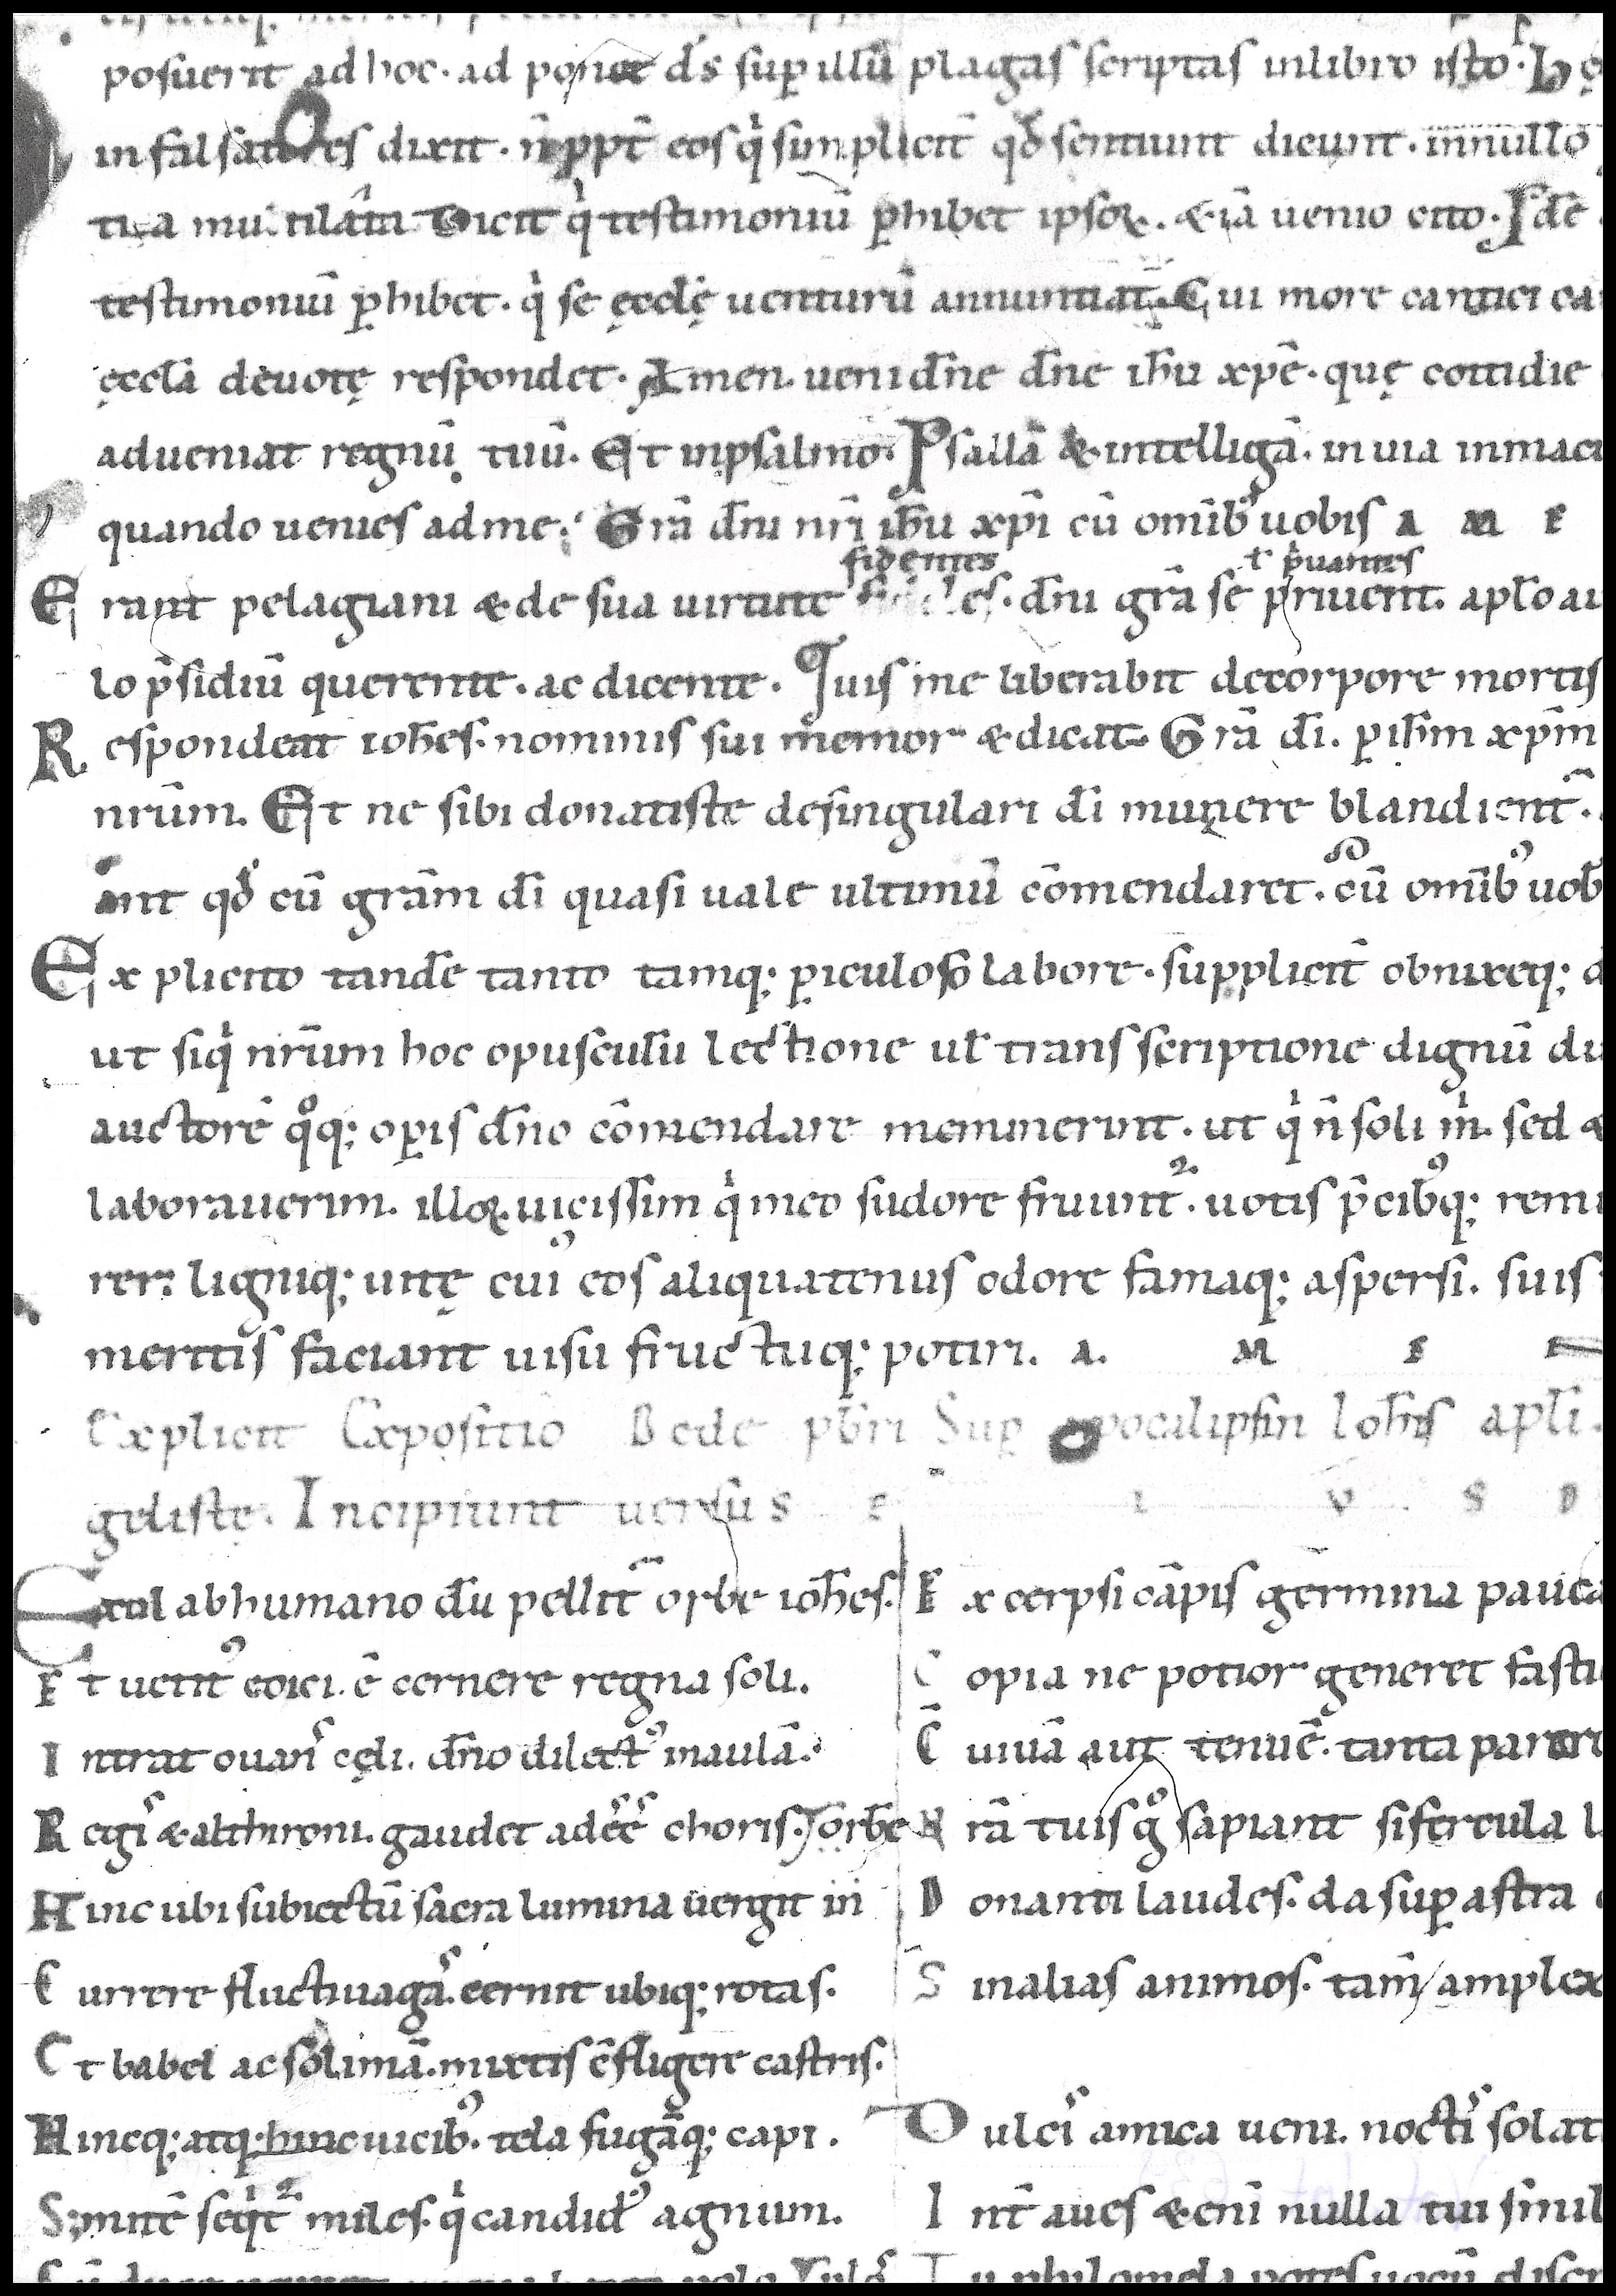 posuerit ad hoc · ad ponet d̄s sup̱ illū plagas scriptas in libro isto · hę
in falsatores dixit · n̄ ppt̄ eos qͥ simplicit̄ qd̄ sentiunt dicunt · in nullo
tia mutilātā Dicit qͥ testimoniū p̱hibet ipsoꝝ · & iā uenio cito · Idē
testimoniū p̱hibet · qͥ se ęccłę uenturū annuntiat̄ · Cui more cantici ca
ęccłā deuotę respondet · Amen · ueni dn̄e dn̄e ih̄u xp̄e · quę cottidie
adueniat regnū tuū · Et in psalmo · Psallā & intelligā · in uia inmacu
quando uenies ad me · Grā dn̄i nr̄i ih̄u xp̄i cū omīb; uobis A M E
fidentes ł p̱uantes
Erant pelagiani & de sua uirtute · dn̄i grā se priuent · apło au
lo p̄sidiū querente · ac dicente · Quis me liberabit de corpore mortis
Respondeat ioh̄es · nominis sui memor & dicat · Grā dī · p̱ ih̄m xp̄m
nr̄um · Et ne sibi donatistę de singulari dī munere blandient̄ ·
ant qd̄ cū grām dī quasi uale ultimū cōmendaret · cū omīb; uob
Explicito tandē tanto tamq; p̱iculoso labore · supplicit̄ obnixeq; d
ut siqͥ nr̄um hoc opuscułū lectione uł transscriptione dignū du
auctorē qͦq; op̱is dn̄o cōmendare meminerint · ut qͥ n̄ soli mͥ · sed &
laborauerim · illoꝝ uicissim qͥ meo sudore fruunt᷑ · uotis p̄cibꝰq; remu
rer · ligniq; uitę cuiꝰ eos aliquatenus odore famaq; aspersi · suis
meritis faciant uisu fructuq; potiri · A · M E N
Explicit Expositio Bede pb̄ri Sup̱ Apocalipsin Ioh̄is apłi ·
gelistę · Incipiunt uersus E I V S D
Exul ab humano dū pellit᷑ orbe ioh̄es ·
Et uetitꝰ eoici · ē cernere regna soli ·
Intrat ouanˢ cęli · dn̄o dilectꝰ in aulā ·
Regiˢ & altithroni · gaudet adēˢˢē choris ·
Hinc ubi subiectū sacra lumina uergit in orbē
Currere fluctiuagāˢ cernit ubiq; rotas ·
Et babel ac solimā · mixtis cōfligere castris ·
Hincq; atq; hinc uicibꝰ · tela fugāq; capi ·
Sȝ mitē seqͥt᷑ miles · qͥ candidꝰ agnum ·
Excerpsi cāpis germina pauca
Copia ne potior generet fasti
Cuiuā aut tenuē · tanta parare
Nrā tuis qͦ sapiant si fercula l
Donanti laudes · da sup̱ astra
Sin alias animos · tam̄ amplex
Dulciˢ amica ueni · noctiˢ solat
Int̄ aues & eni nulla tui simil
Tu philomela potes uocū discr